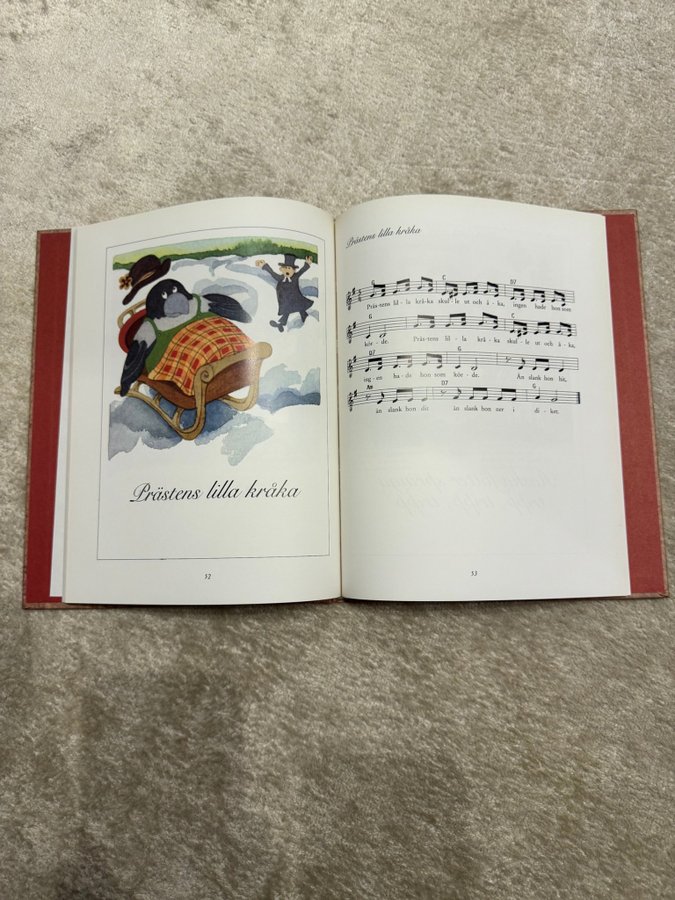 Prästens lilla kråka
52
Prästens lilla kråka
G C D7
Präs-tens lil-la krå-ka skul-le ut och å-ka, ingen hade hon som
G C
kör-de. Präs-tens lil-la krå-ka skul-le ut och å-ka,
D7 G
ing-en ha-de hon som kör-de. Än slank hon hit,
Am D7 G
än slank hon dit än slank hon ner i di-ket.
53